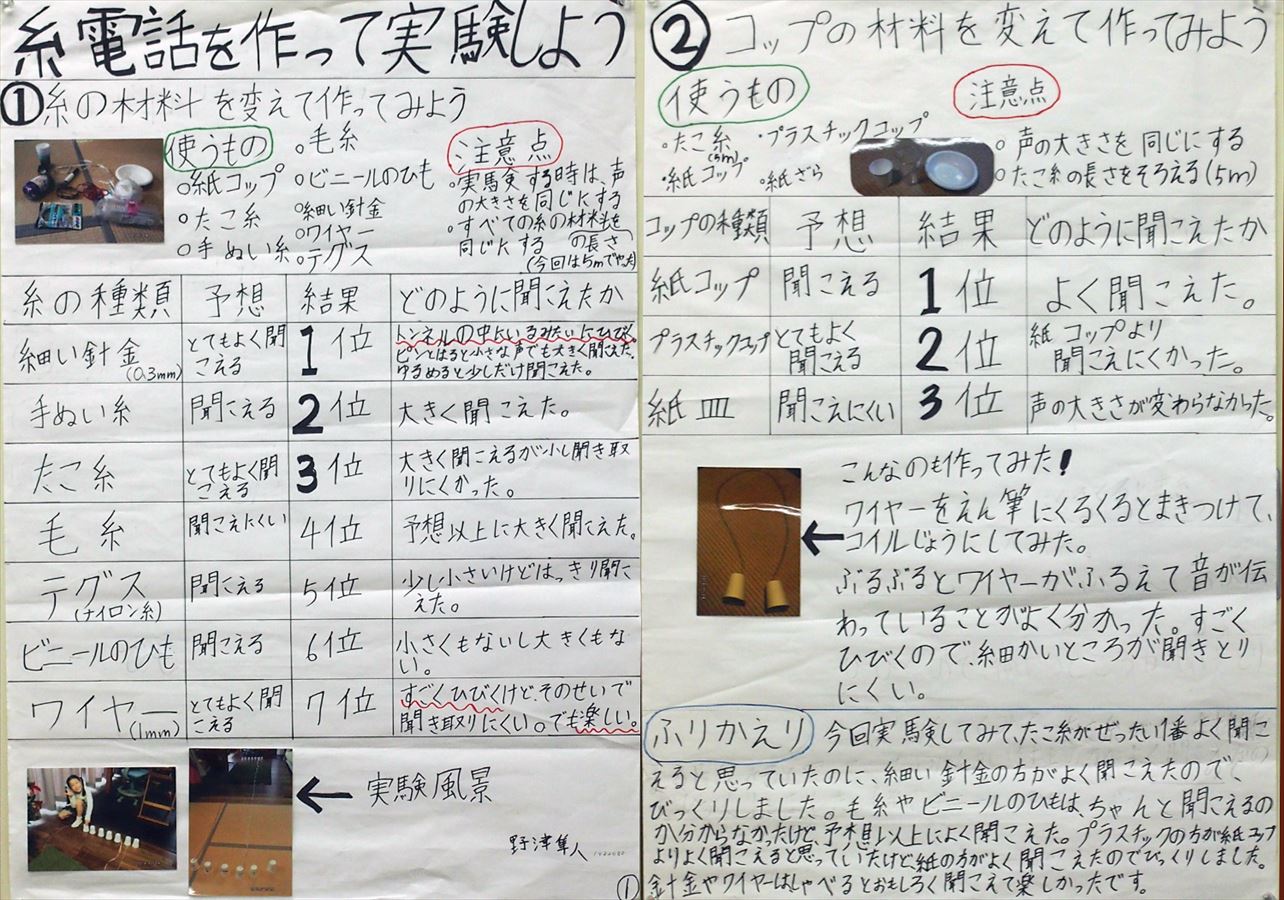 糸電話を作って実験しよう
①糸の材料を変えて作ってみよう
使うもの
○紙コップ
○たこ糸
○手ぬい糸
○毛糸
○ビニールのひも
○細い針金
○ワイヤー
○テグス
注意点
○実験する時は、声
の大きさを同じにする
○すべての糸の材料を
同じにする の長さ
(今回は5mでやった)
糸の種類 予想 結果 どのように聞こえたか
細い針金 (0.3mm) とてもよく聞こえる 1位 トンネルの中にいるみたいにひびく。
ピンとはると小さな声でも大きく聞こえた。
ゆるめると少しだけ聞こえた。
手ぬい糸 聞こえる 2位 大きく聞こえた。
たこ糸 とてもよく聞こえる 3位 大きく聞こえるが少し聞き取
りにくかった。
毛糸 聞こえにくい 4位 予想以上に大きく聞こえた。
テグス (ナイロン糸) 聞こえる 5位 少し小さいけどはっきり聞こ
えた。
ビニールのひも 聞こえる 6位 小さくもないし大きくもな
い。
ワイヤー (1mm) とてもよく聞こえる 7位 すごくひびくけど、そのせいで
聞き取りにくい。でも楽しい。
←実験風景
野津隼人
①
②コップの材料を変えて作ってみよう
使うもの
○たこ糸(5m)
○紙コップ
・プラスチックコップ
○紙ざら
注意点
○声の大きさを同じにする
○たこ糸の長さをそろえる(5m)
コップの種類 予想 結果 どのように聞こえたか
紙コップ 聞こえる 1位 よく聞こえた。
プラスチックコップ とてもよく聞こえる 2位 紙コップより
聞こえにくかった。
紙皿 聞こえにくい 3位 声の大きさが変わらなかった。
こんなのも作ってみた!
ワイヤーをえん筆にくるくるとまきつけて、
←コイルじょうにしてみた。
ぶるぶるとワイヤーがふるえて音が伝
わっていることがよく分かった。すごく
ひびくので、細かいところが聞きとり
にくい。
ふりかえり 今回実験してみて、たこ糸がぜったい1番よく聞こ
えると思っていたのに、細い針金の方がよく聞こえたので、
びっくりしました。毛糸やビニールのひもは、ちゃんと聞こえるの
か分からなかったけど、予想以上によく聞こえた。プラスチックの方が紙コップ
よりよく聞こえると思っていたけど紙の方がよく聞こえたのでびっくりしました。
針金やワイヤーはしゃべるとおもしろく聞こえて楽しかったです。